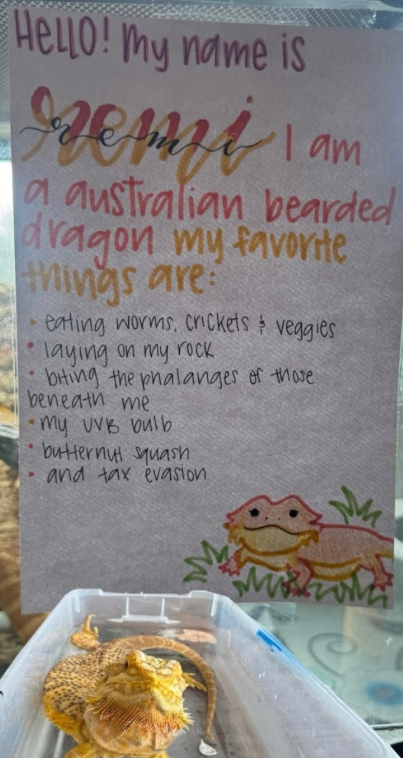 HELLO! My name is
remi I am
a australian bearded
dragon my favorite
things are:
• eating worms, crickets & veggies
• laying on my rock
• biting the phalanges of those
beneath me
• my UVB bulb
• butternut squash
• and tax evasion